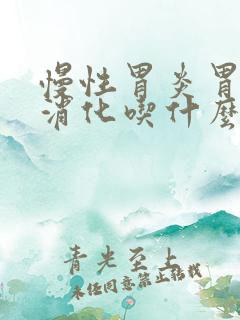 慢性胃炎胃
消化喫什麽
青光至上
未经同意禁止转载